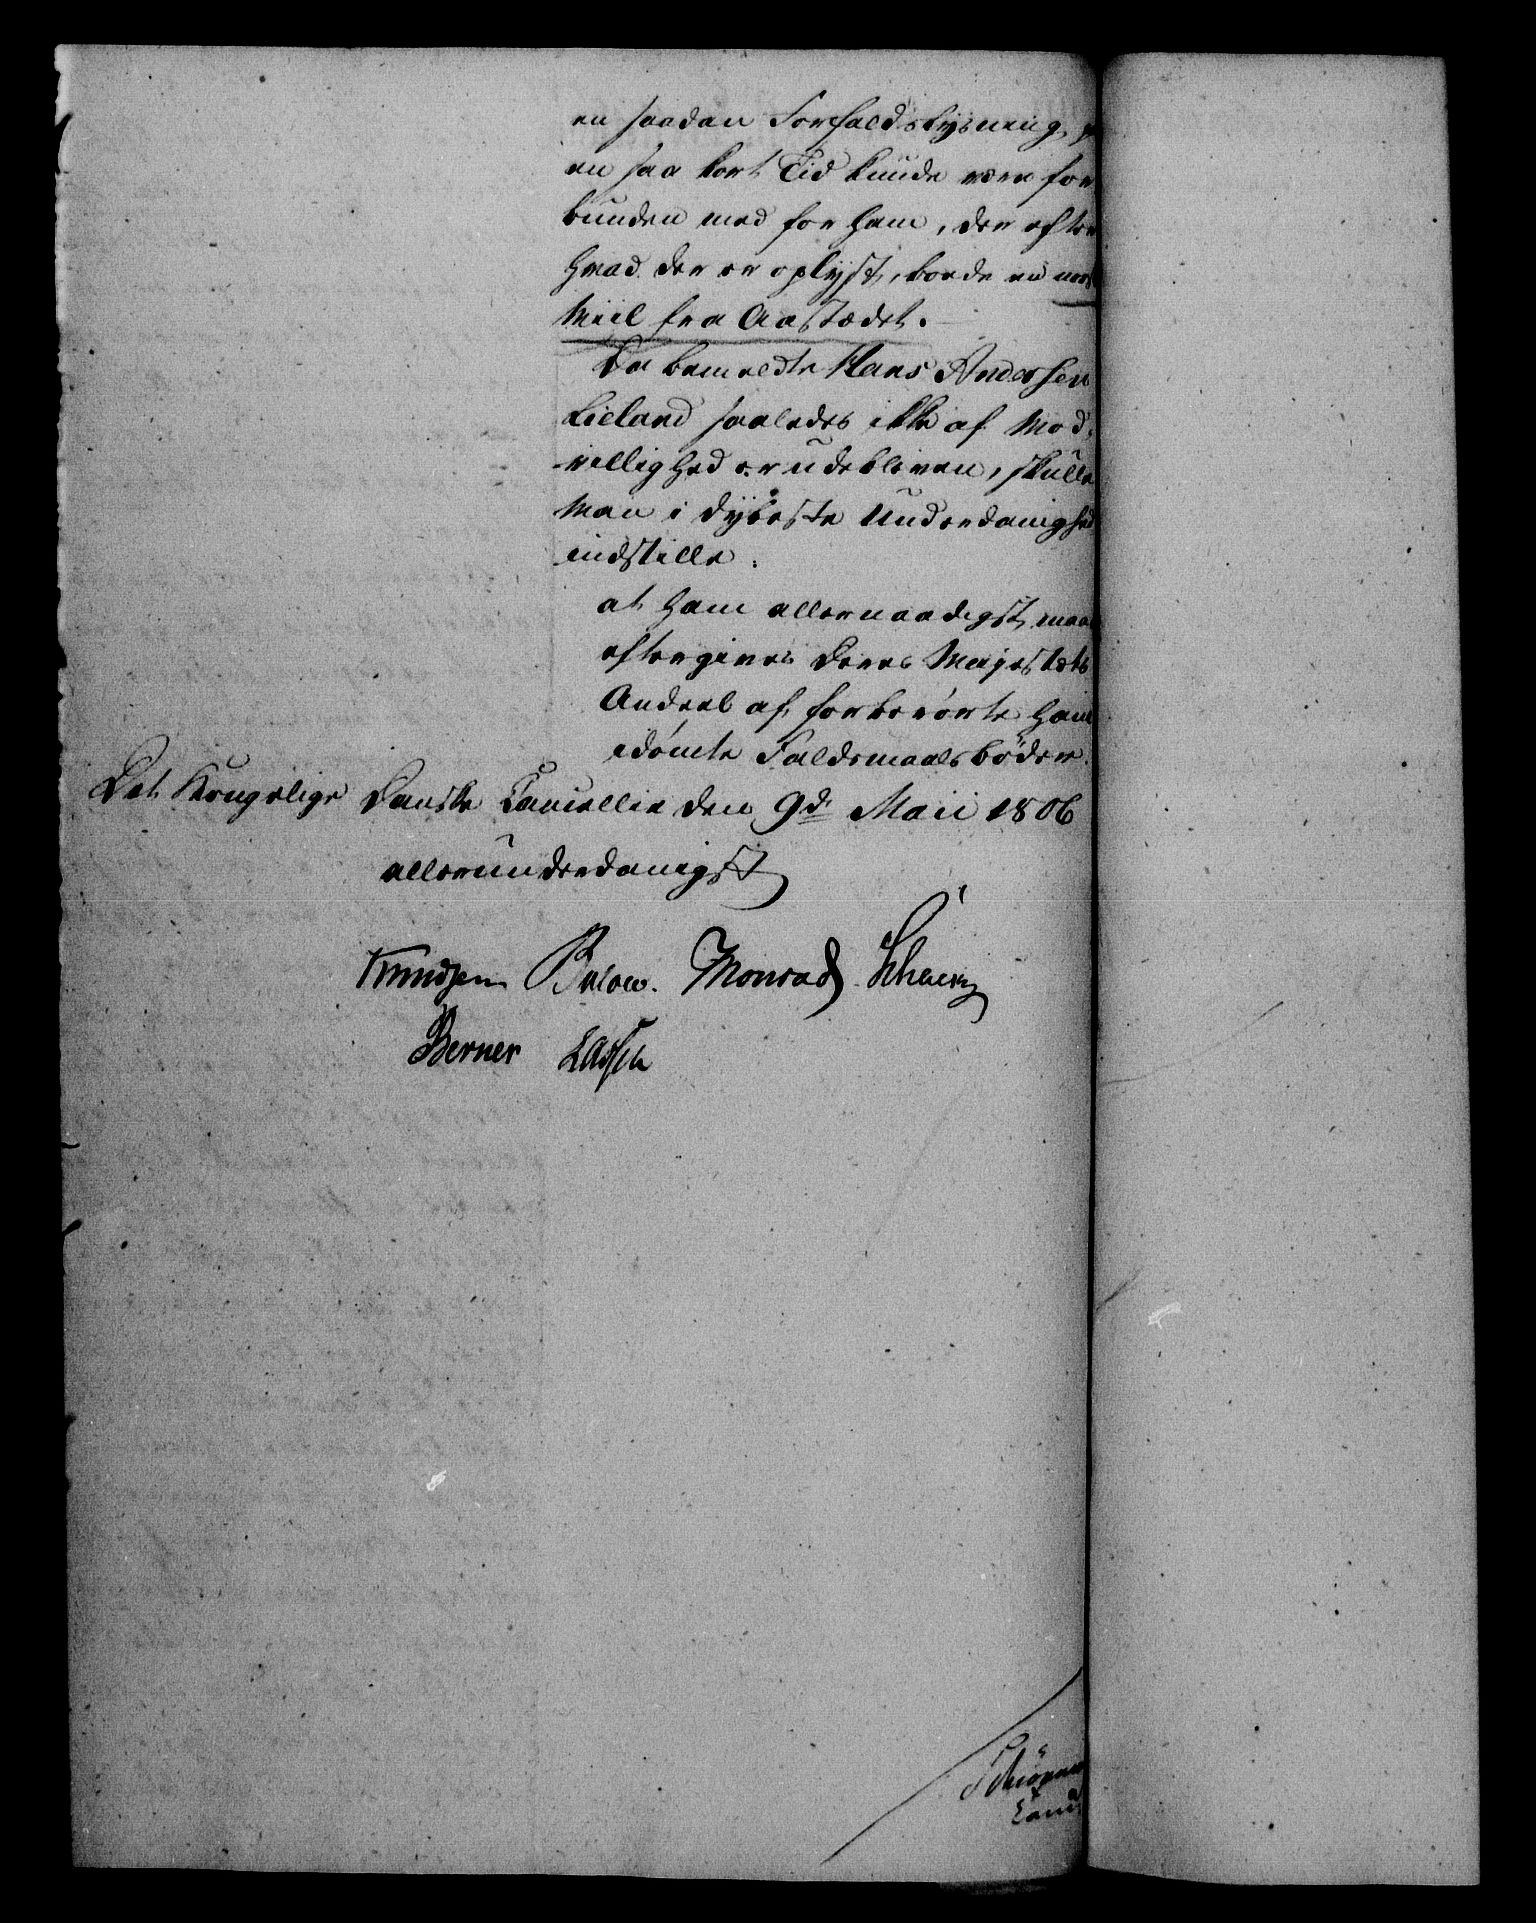 en saadan Forfaldsbysning, 
en saa kort Tid kunde være for
bunden med for ham, der efter
hvad der er oplyst, boede en
Miil fra Aastædet.
Da bemeldte Hans Andersen
Lieland saaledes ikke af Mod-
villighed er udebleven, skulle
Man i dybeste Underdanighed
indstille:
at ham allernaadigst maae
eftergives Deres Majestæts
Andeel af forberørte ham
idömte Faldsmaalsböder.
Det Kongelige Danske Cancellie den 9de Maii 1806
allerunderdanigst
Knudsen Bülow. Monrad
Berner Lassen